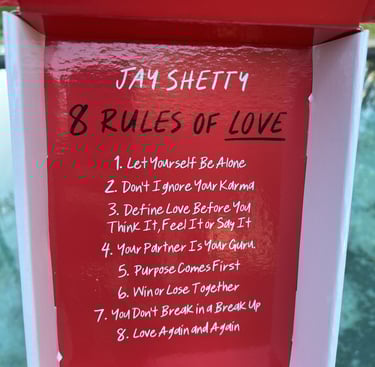 JAY SHETTY
8 RULES OF LOVE
1. Let Yourself Be Alone
2. Don't Ignore Your Karma
3. Define Love Before You
Think It, Feel It or Say It
4. Your Partner Is Your Guru.
5. Purpose Comes First
6. Win or Lose Together
7. You Don't Break in a Break Up
8. Love Again and Again